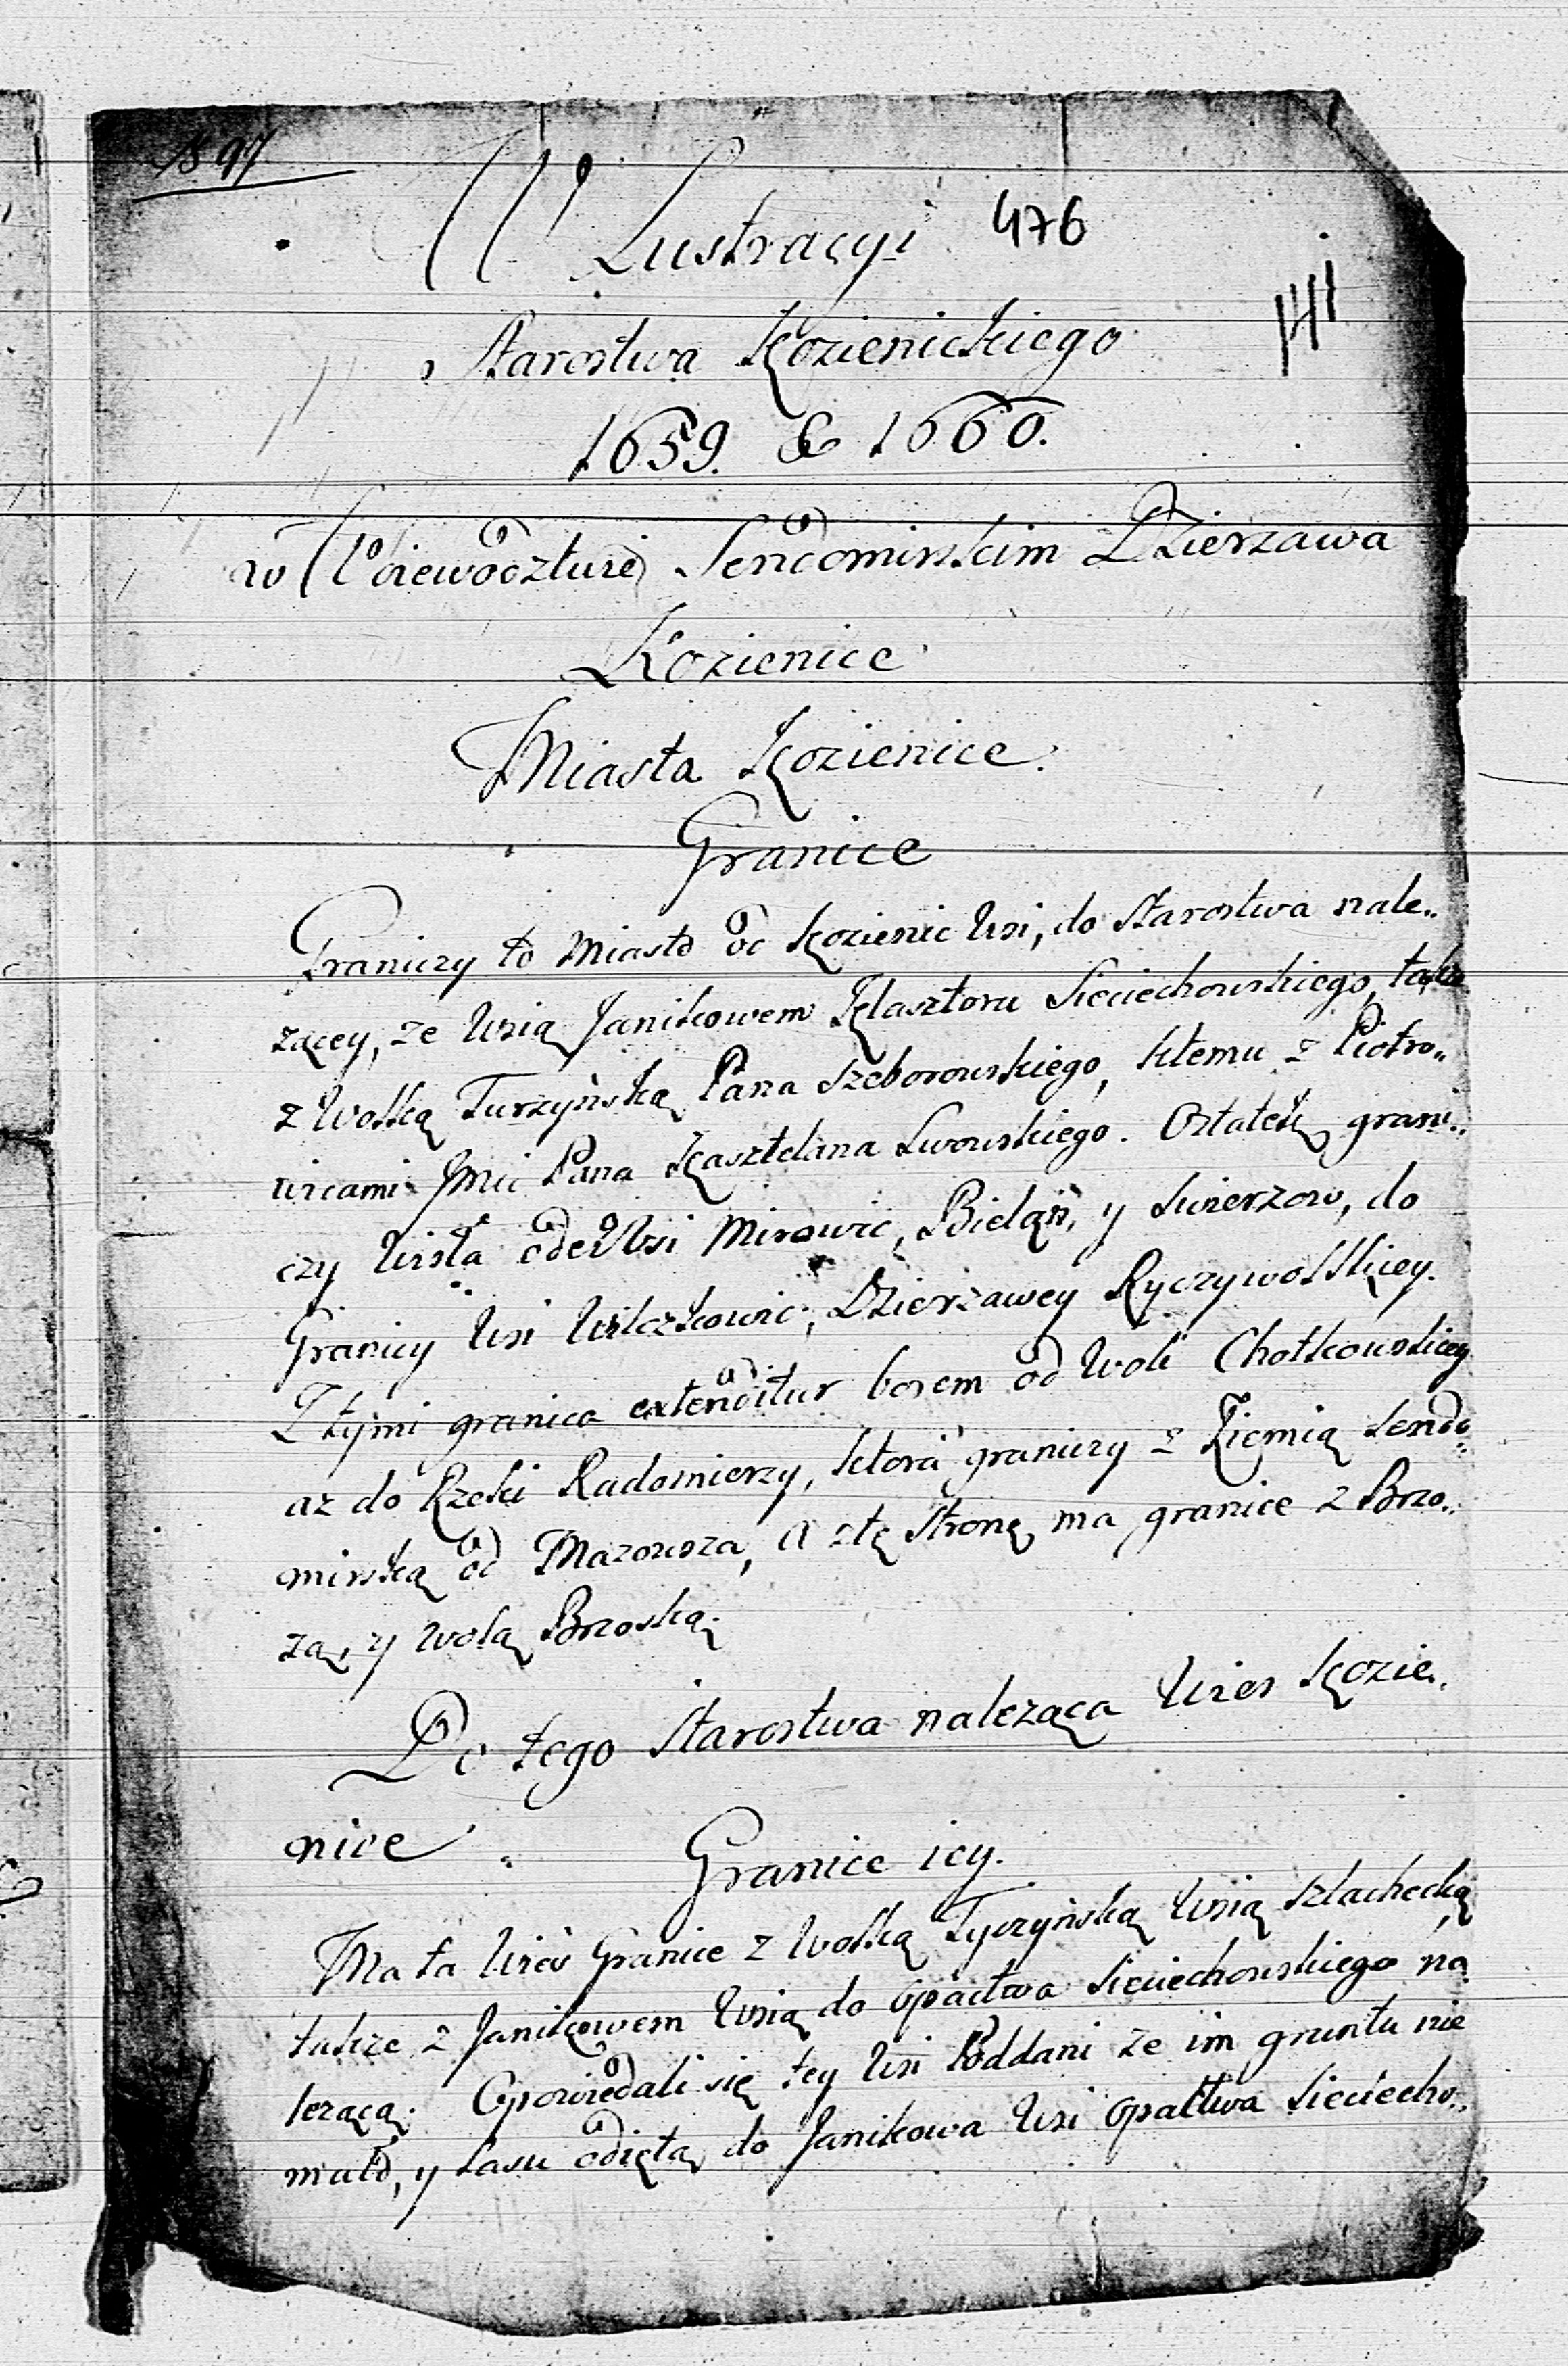 1897
476
W Lustracyi
Starostwa Kozienickiego
1659. & 1660.
w Woiewodztwie Sendomirskim Dzierzawa
Kozienice
Miasta Kozienice.
Granice
Graniczy to Miasto od Kozienic Wsi, do Starostwa nale..
zącey, ze Wsią Janikowem Klasztoru Sieciechowskiego, także
z Wolką Turzyńską Pana Szeborowskiego, ktemu z Piotro..
wicami Jmci Pana Kasztelana Lwowskiego. Ostatek grani..
czy Wisła ode Wsi Mirowic, Bieląń, y Swierzow, do
Granicy Wsi Wilczkowic, Dzierżawey Ryczywolskiey.
Z tymi granica extenditur borem od Woli Chotkowskiey
az do Rzeki Radomierzy, ktora graniczy z Ziemią Sendo..
mirską od Mazowsza, a z tę Stronę ma granice z Brzo..
zą, y Wolą Brzoską.
Do tego Starostwa naleząca Wies Kozie..
nice
Granice iey.
Ma ta Wieś Granice z Wolką Tyczyńską Wsią Szlachecką
takze z Janikowem Wsią do Opactwa Sieciechowskiego na
lezącą. Opowiedali się tey Wsi Poddani ze im gruntu nie
mało, y Lasu odięto do Janikowa Wsi Opactwa Sieciecho..